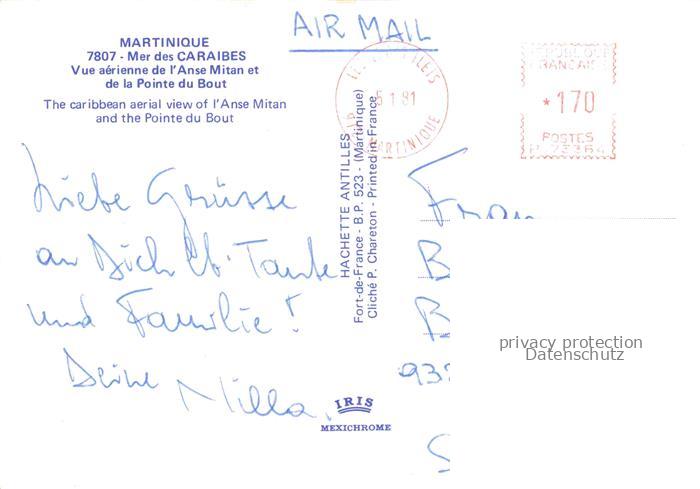 AIR MAIL
MARTINIQUE
7807 - Mer des CARAIBES
Vue aérienne de l'Anse Mitan et
de la Pointe du Bout
The caribbean aerial view of l'Anse Mitan
and the Pointe du Bout
5 1 81
MARTINIQUE
REPUBLIQUE
FRANCAISE
*170
POSTES
P. 73364
Liebe Grüsse
an Dich lb. Tante
und Familie!
Deine Milla.
HACHETTE ANTILLES
Fort-de-France - B.P. 523 - (Martinique)
Cliché P. Chareton - Printed in France
IRIS
MEXICHROME
Frau
B
B
93
S
privacy protection
Datenschutz